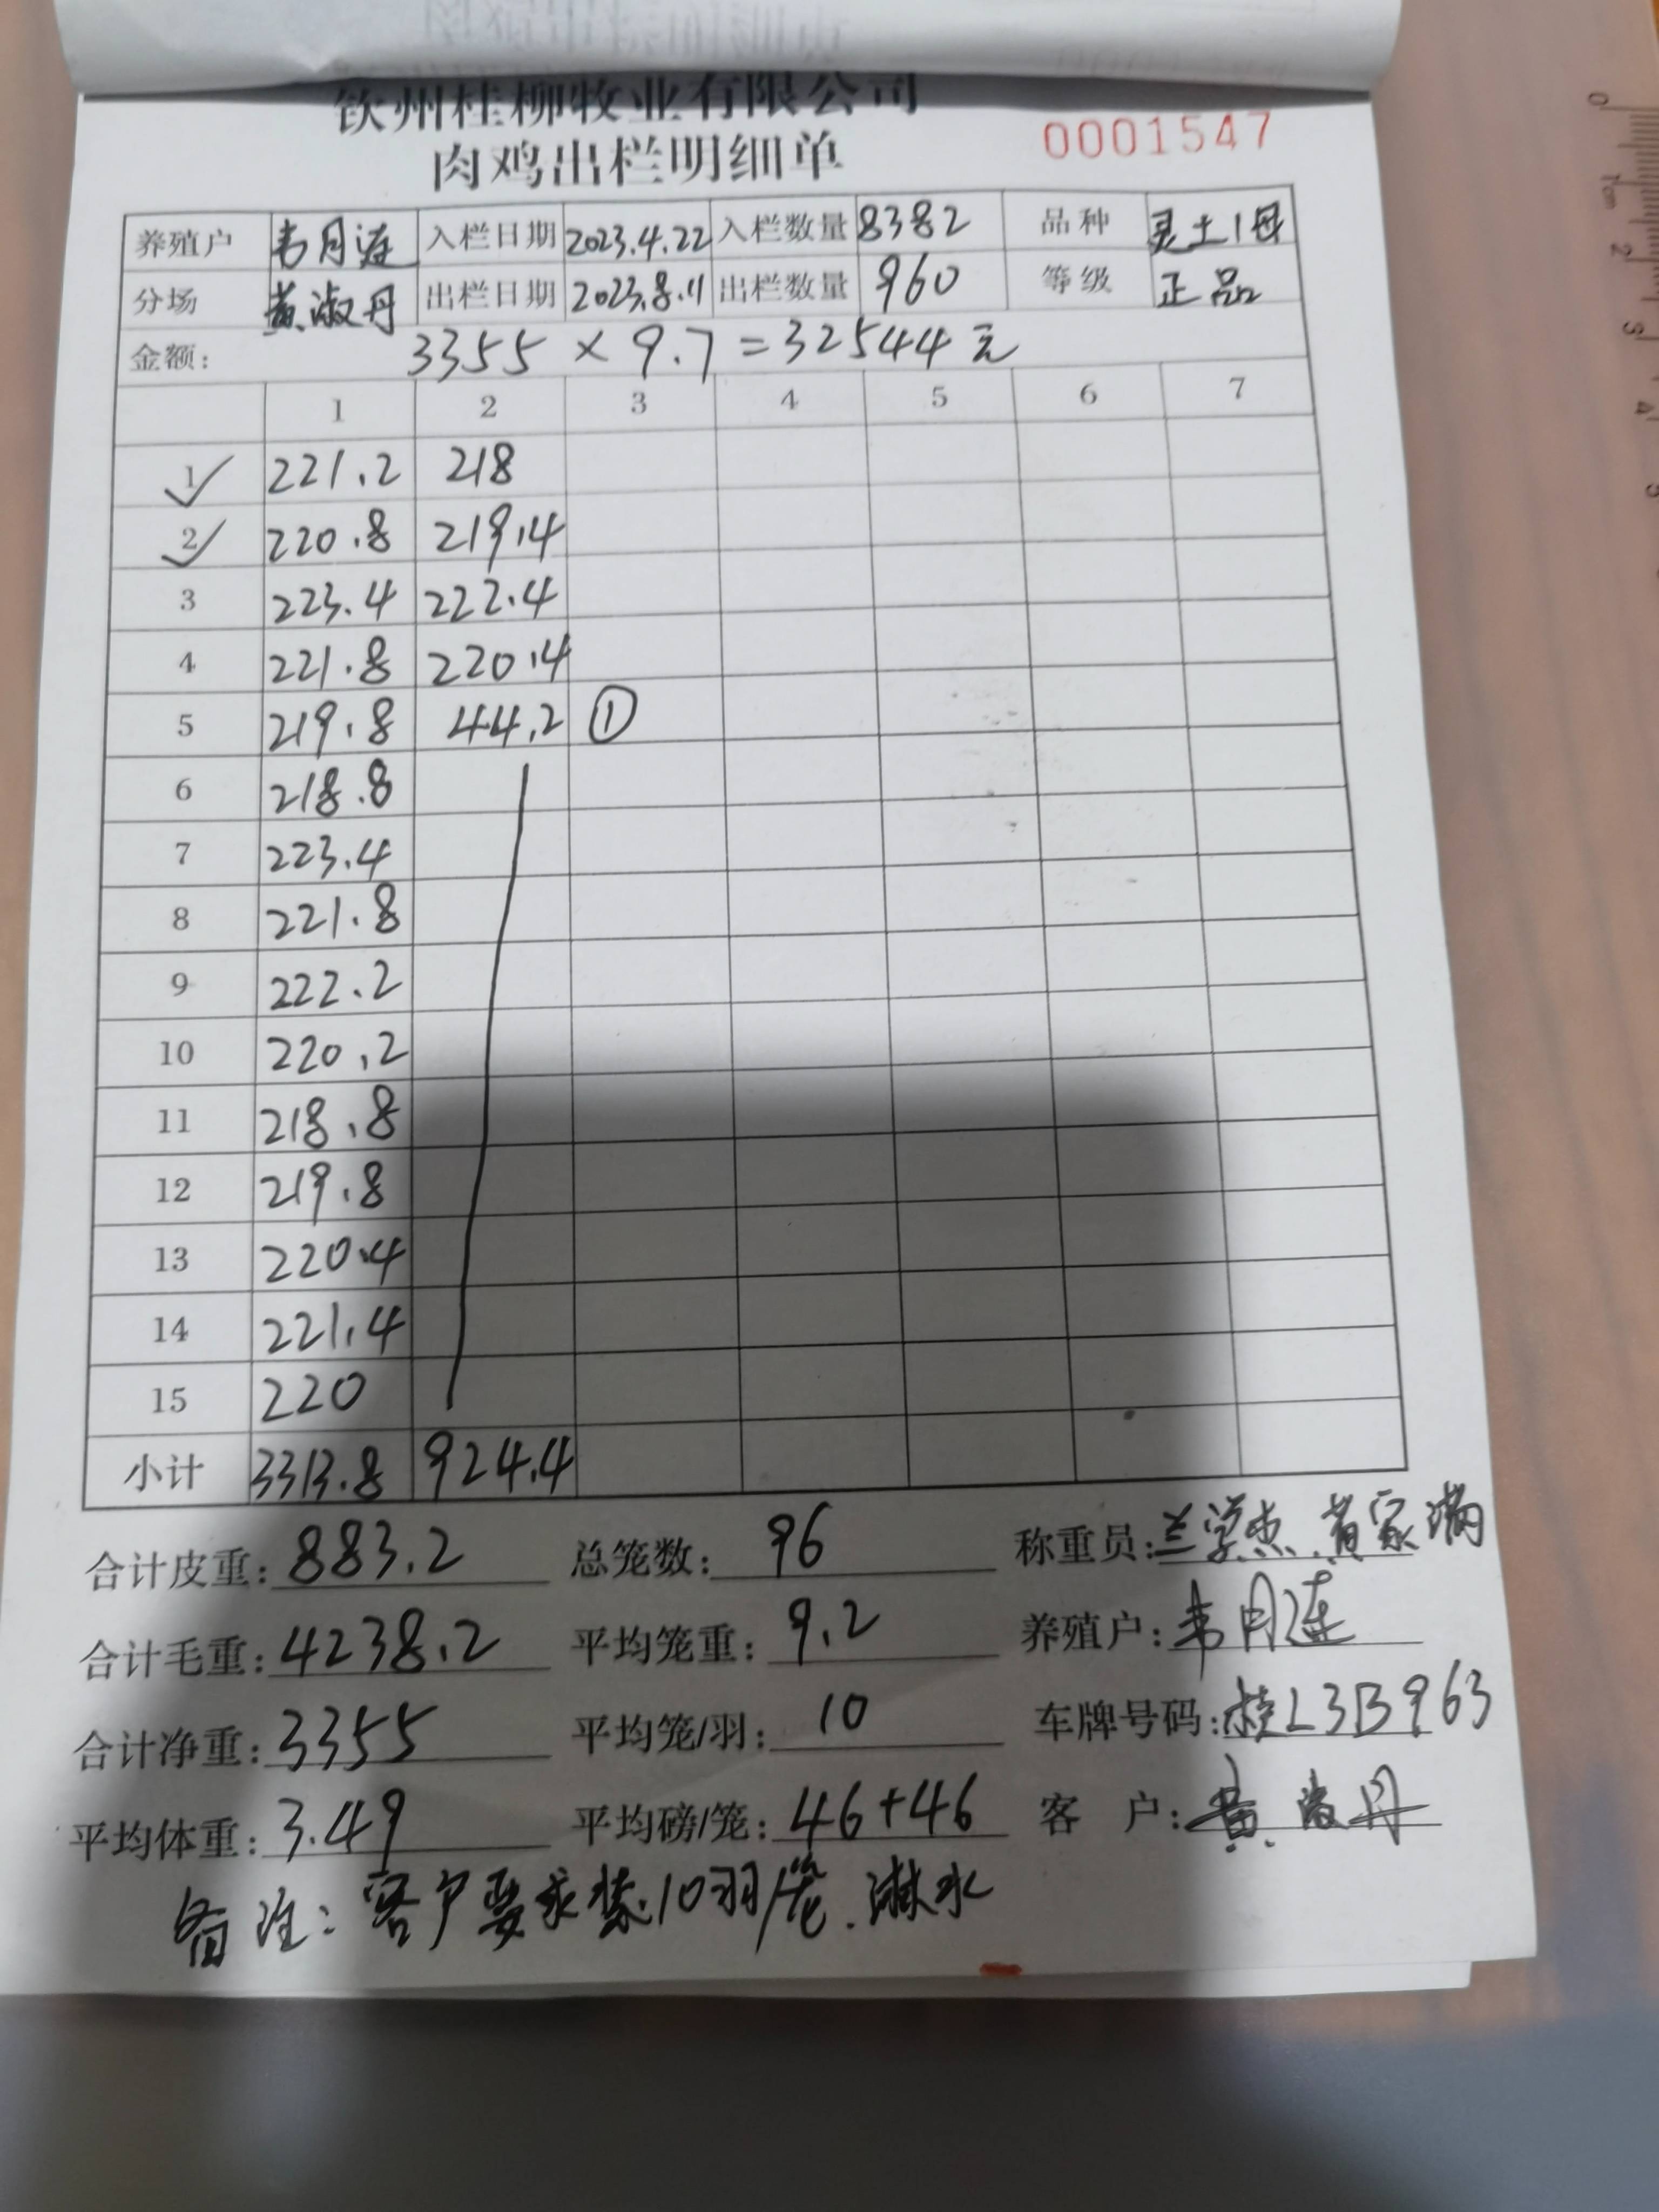 钦州桂柳牧业有限公司
肉鸡出栏明细单 0001547
养殖户 韦月连 入栏日期 2023.4.22 入栏数量 8382 品种 灵土1母
分场 黄淑丹 出栏日期 2023.8.11 出栏数量 960 等级 正品
金额: 3355 × 9.7 = 32544元
1 2 3 4 5 6 7
1 221.2 218
2 220.8 219.4
3 223.4 222.4
4 221.8 220.4
5 219.8 44.2 ①
6 218.8
7 223.4
8 221.8
9 222.2
10 220.2
11 218.8
12 219.8
13 220.4
14 221.4
15 220
小计 3313.8 924.4
合计皮重: 883.2 总笼数: 96 称重员: 兰学杰 黄家满
合计毛重: 4238.2 平均笼重: 9.2 养殖户: 韦月连
合计净重: 3355 平均笼/羽: 10 车牌号码: 桂L3B963
平均体重: 3.49 平均磅/笼: 46+46 客户: 黄淑丹
备注: 客户要求装10羽/笼.淋水
0 1cm 2 3 4 5